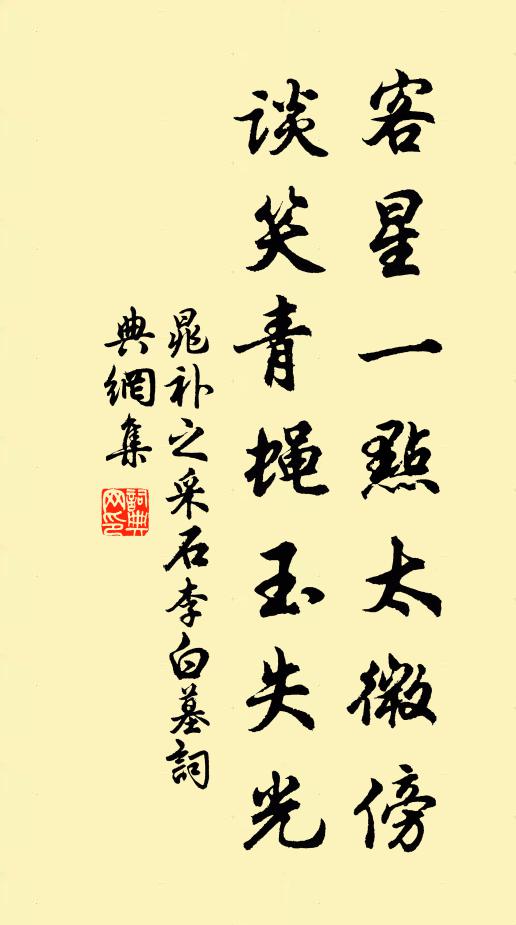 客星一點太微傍
談笑青蝇玉失光
晁补之采石李白墓詞
典網集
詞典网印